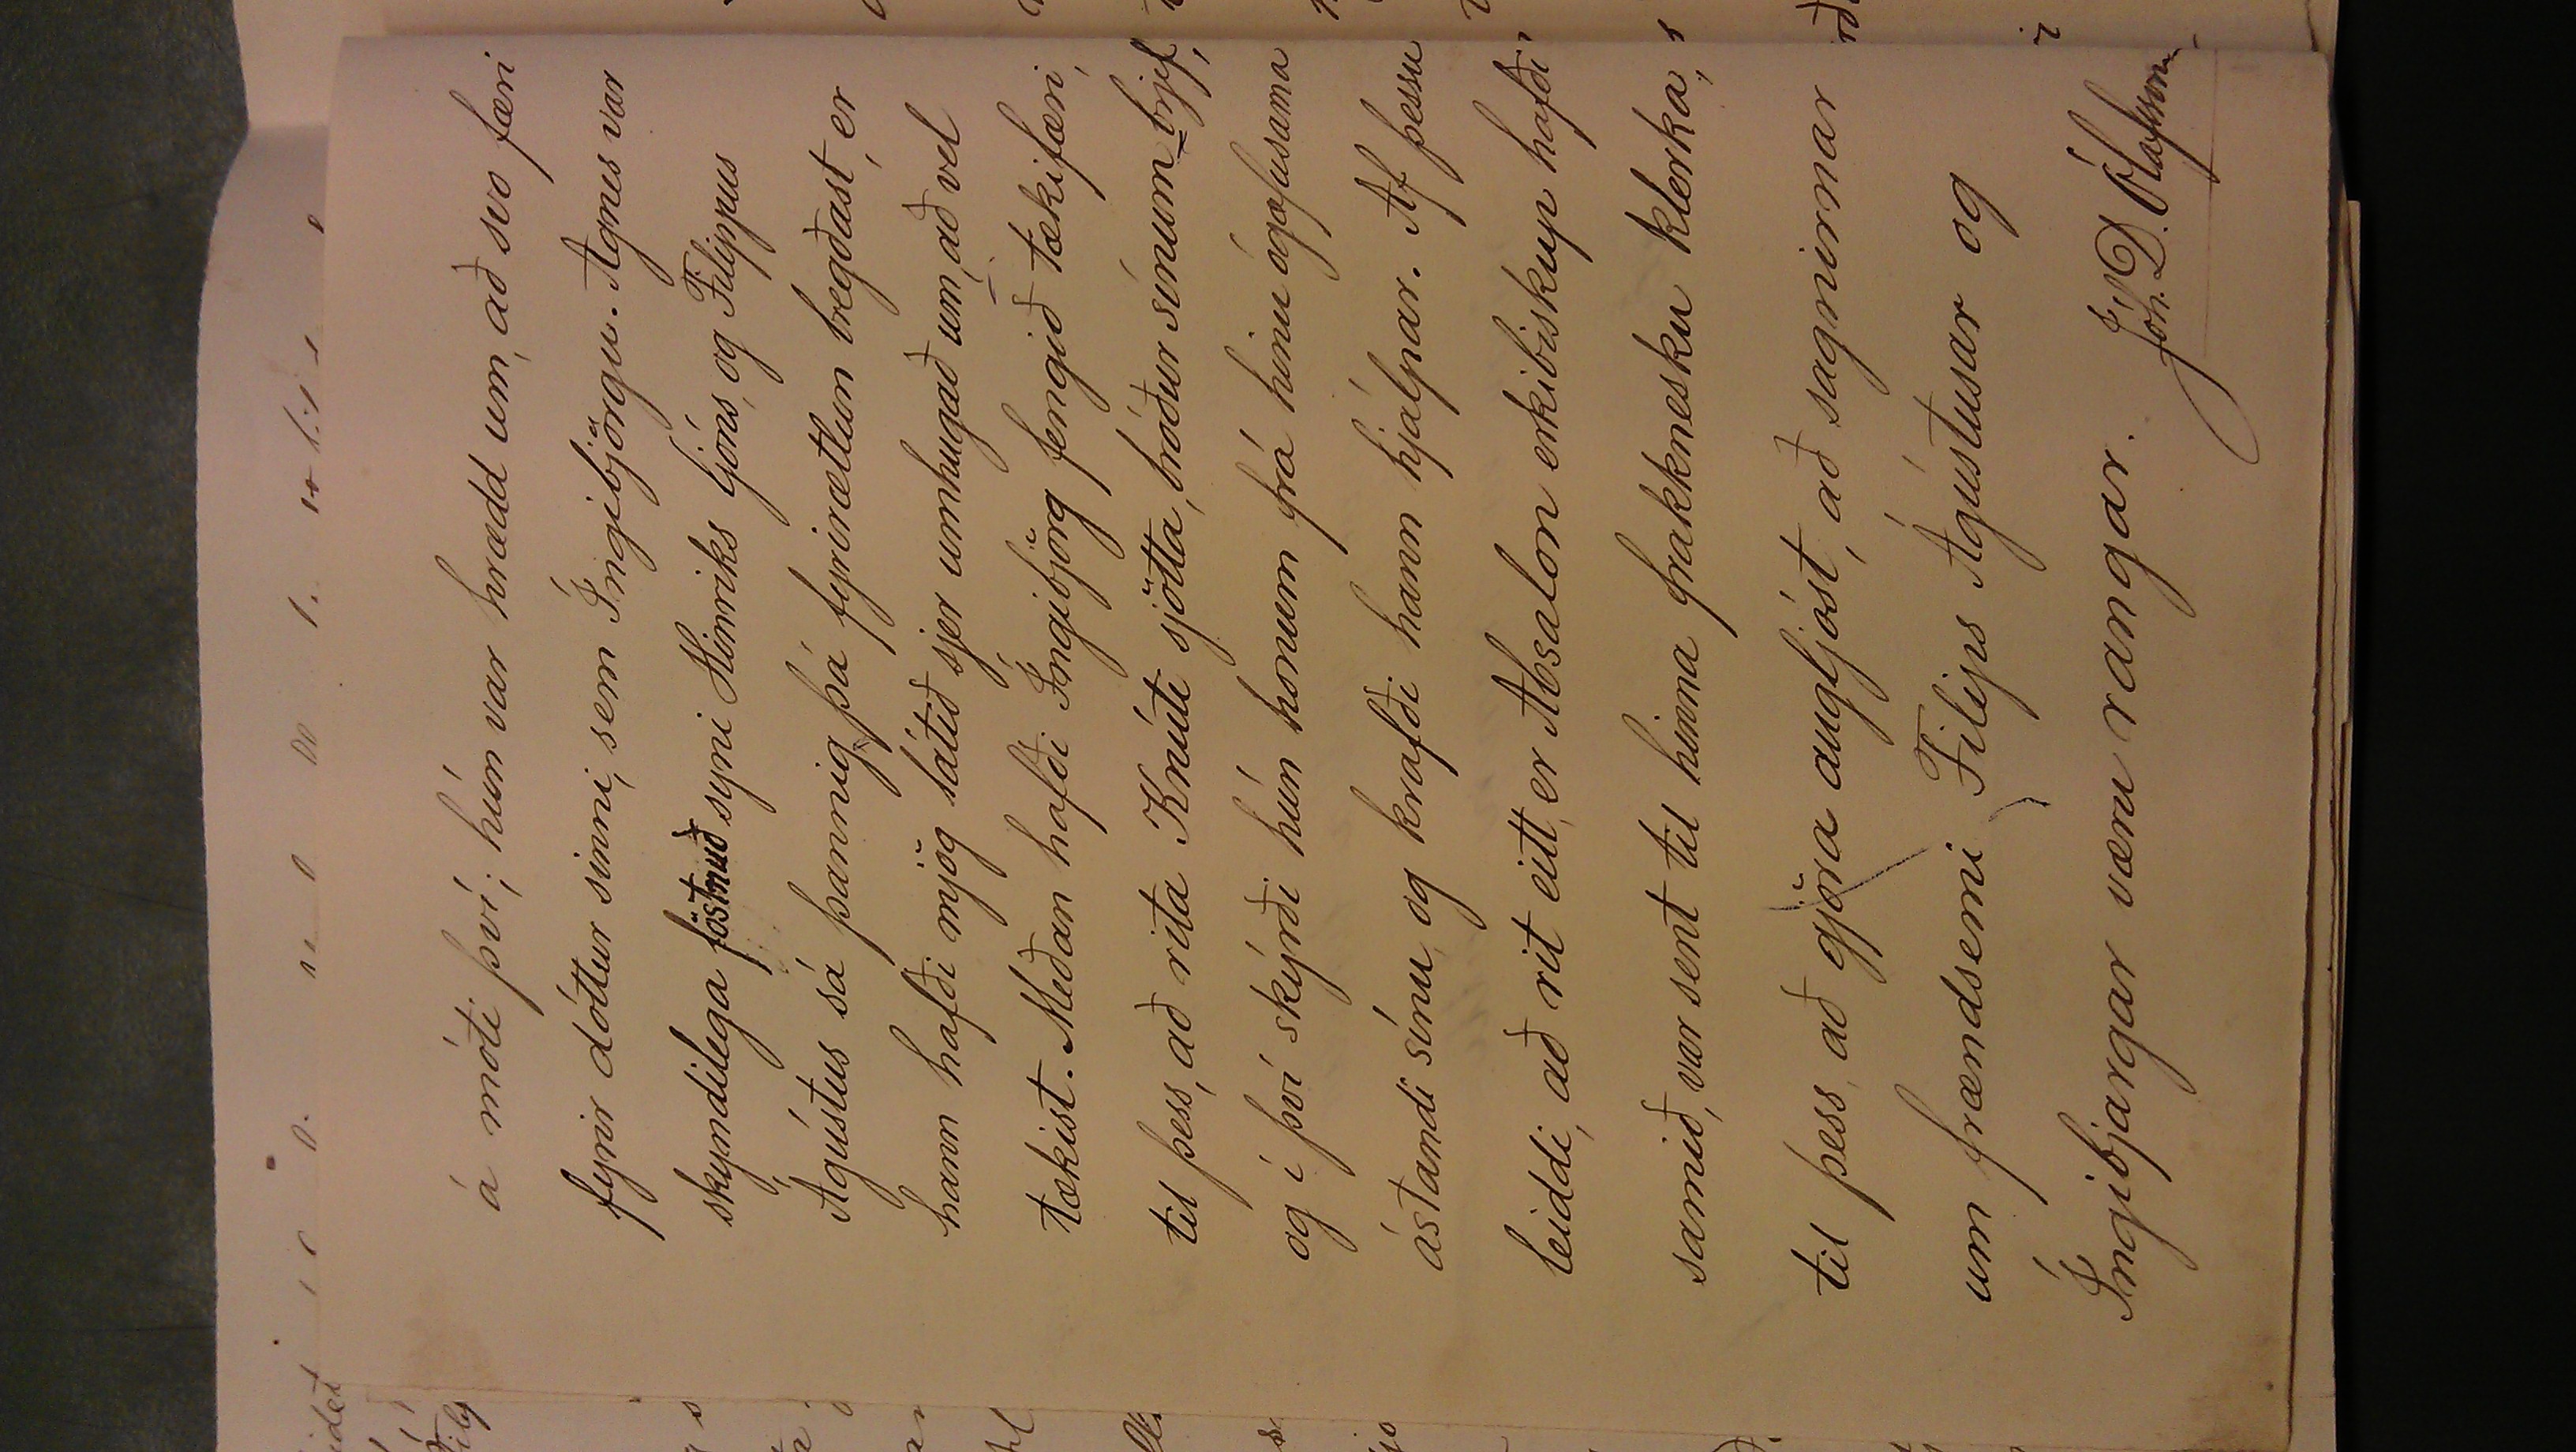 á móti því; hún var hrædd um, að svo færi
fyrir dóttur sinni, sem Íngibjörgu. Agnes var
skyndilega föstnuð syni Hinriks Ljóns, og Filippus
Ágústus sá þannig þá fyrirætlun bregðast, er
hann hafði mjög látið sjer umhugað um, að vel
tækist. Meðan hafði Íngibjörg fengið tækifæri,
til þess, að rita Knúti sjötta, bróður sínum brjef,
og í því skýrði hún honum frá hinu ógæfusama
ástandi sínu, og krafði hann hjálpar. Af þessu
leiddi, að rit eitt, er Absalon erkibiskup hafði
samið, var sent til hinna frakknesku klerka,
til þess, að gjöra augljóst, að sagnirnar
um frændsemi Filips Ágústusar og
Íngibjargar væru rangar.
Jóh. D. Ólafsson